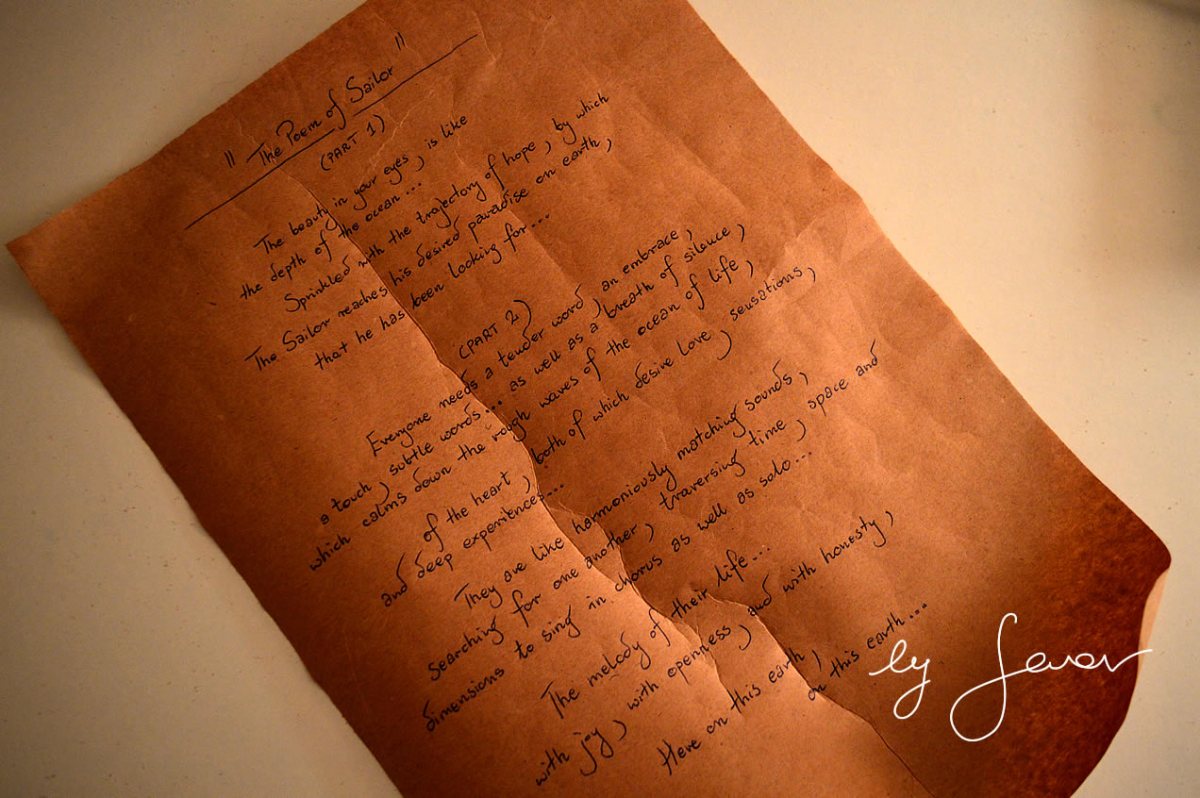 " The Poem of Sailor "
(PART 1)
The beauty in your eyes, is like
the depth of the ocean...
Sprinkled with the trajectory of hope, by which
The Sailor reaches his desired paradise on earth,
that he has been looking for...
(PART 2)
Everyone needs a tender word, an embrace,
a touch, subtle words... as well as a breath of silence,
which calms down the rough waves of the ocean of life,
of the heart, both of which desire love, sensations,
and deep experiences...
They are like harmoniously matching sounds,
searching for one another, traversing time, space and
dimensions to sing in chorus as well as solo...
The melody of their life...
with joy, with openness, and with honesty,
Here on this earth,
on this earth...
by